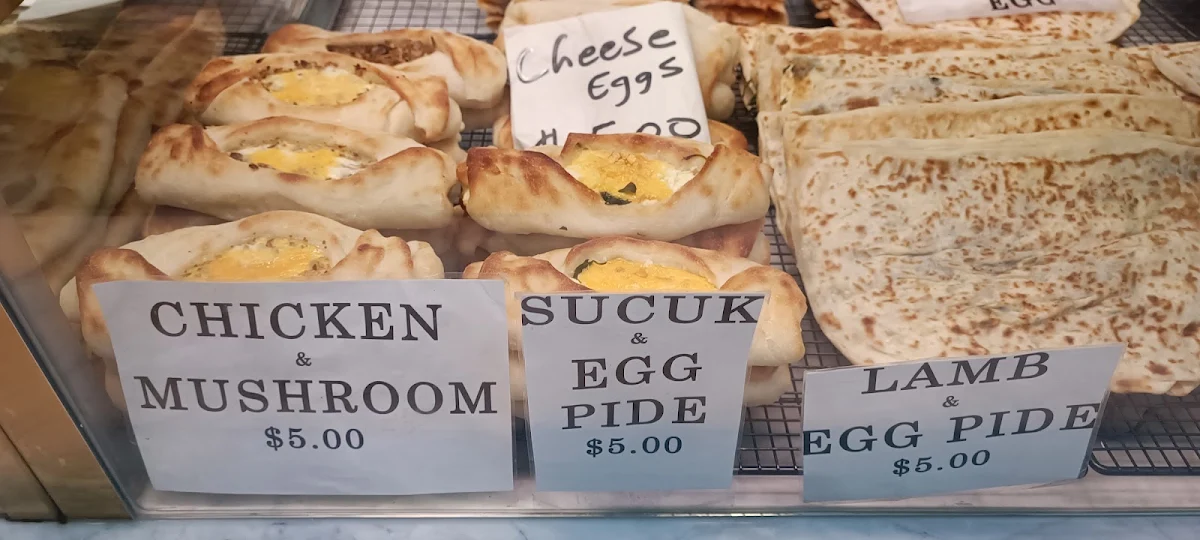 EGG
Cheese
Eggs
$5.00
CHICKEN
&
MUSHROOM
$5.00
SUCUK
&
EGG
PIDE
$5.00
LAMB
&
EGG PIDE
$5.00